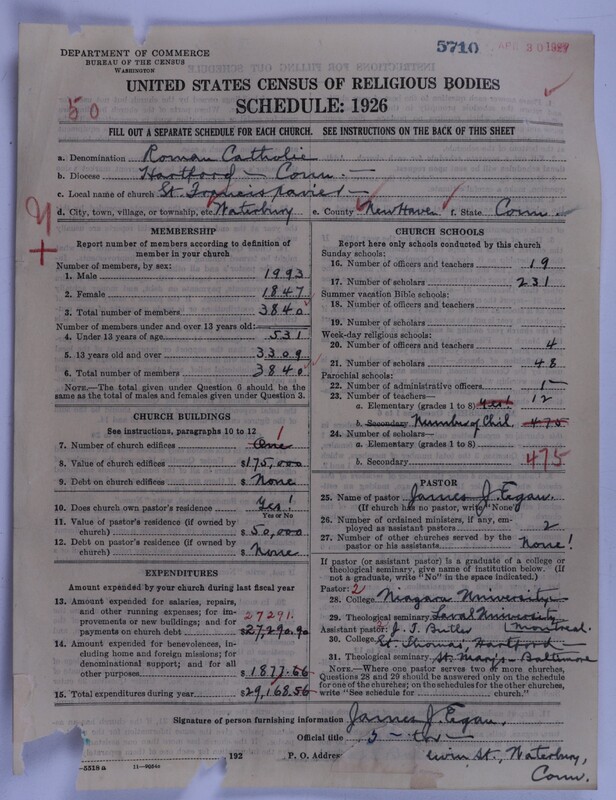 DEPARTMENT OF COMMERCE
BUREAU OF THE CENSUS
WASHINGTON
5710
UNITED STATES CENSUS OF RELIGIOUS BODIES
SCHEDULE: 1926
50
FILL OUT A SEPARATE SCHEDULE FOR EACH CHURCH. SEE INSTRUCTIONS ON THE BACK OF THIS SHEET
a. Denomination Roman Catholic
b. Diocese Hartford - Conn. -
c. Local name of church St. Francis Xavier -
d. City, town, village, or township, etc. Waterbury e. County New Haven f. State Conn.
MEMBERSHIP
Report number of members according to definition of
member in your church
Number of members, by sex:
1. Male 1993
2. Female 1847
3. Total number of members 3840
Number of members under and over 13 years old:
4. Under 13 years of age 531
5. 13 years old and over 3309
6. Total number of members 3840
NOTE.—The total given under Question 6 should be the
same as the total of males and females given under Question 3.
CHURCH BUILDINGS
See instructions, paragraphs 10 to 12
7. Number of church edifices One 1
8. Value of church edifices $175,000
9. Debt on church edifices $ None
10. Does church own pastor's residence? Yes!
Yes or No
11. Value of pastor's residence (if owned by
church) $ 50,000
12. Debt on pastor's residence (if owned by
church) $ None
EXPENDITURES
Amount expended by your church during last fiscal year
13. Amount expended for salaries, repairs,
and other running expenses; for im-
provements or new buildings; and for
payments on church debt $ 27,290.90
27291.
14. Amount expended for benevolences, in-
cluding home and foreign missions; for
denominational support; and for all
other purposes $ 1877.66
15. Total expenditures during year $ 29,168.56
CHURCH SCHOOLS
Report here only schools conducted by this church
Sunday schools:
16. Number of officers and teachers 19
17. Number of scholars 231
Summer vacation Bible schools:
18. Number of officers and teachers
19. Number of scholars
Week-day religious schools:
20. Number of officers and teachers 4
21. Number of scholars 48
Parochial schools:
22. Number of administrative officers 1
23. Number of teachers—
a. Elementary (grades 1 to 8) Yes! 12
b. Secondary Number of Chil. 475
24. Number of scholars—
a. Elementary (grades 1 to 8)
b. Secondary 475
PASTOR
25. Name of pastor James J. Egan.
(If church has no pastor, write "None")
26. Number of ordained ministers, if any, em-
ployed as assistant pastors 2
27. Number of other churches served by the
pastor or his assistants None!
If pastor (or assistant pastor) is a graduate of a college or
theological seminary, give name of institution below. (If
not a graduate, write "No" in the space indicated.)
Pastor: 2
28. College Niagara University
29. Theological seminary Laval University
Assistant pastor: J. T. Butler (Montreal.
30. College St. Thomas, Hartford
31. Theological seminary St. Mary's - Baltimore
NOTE.—Where one pastor serves two or more churches,
Questions 28 and 29 should be answered only on the schedule
for one of the churches; on the schedules for the other churches,
write "See schedule for church."
Signature of person furnishing information James J. Egan.
Official title
192 P. O. Address St., Waterbury,
Conn.
—5518 a 11—9054a